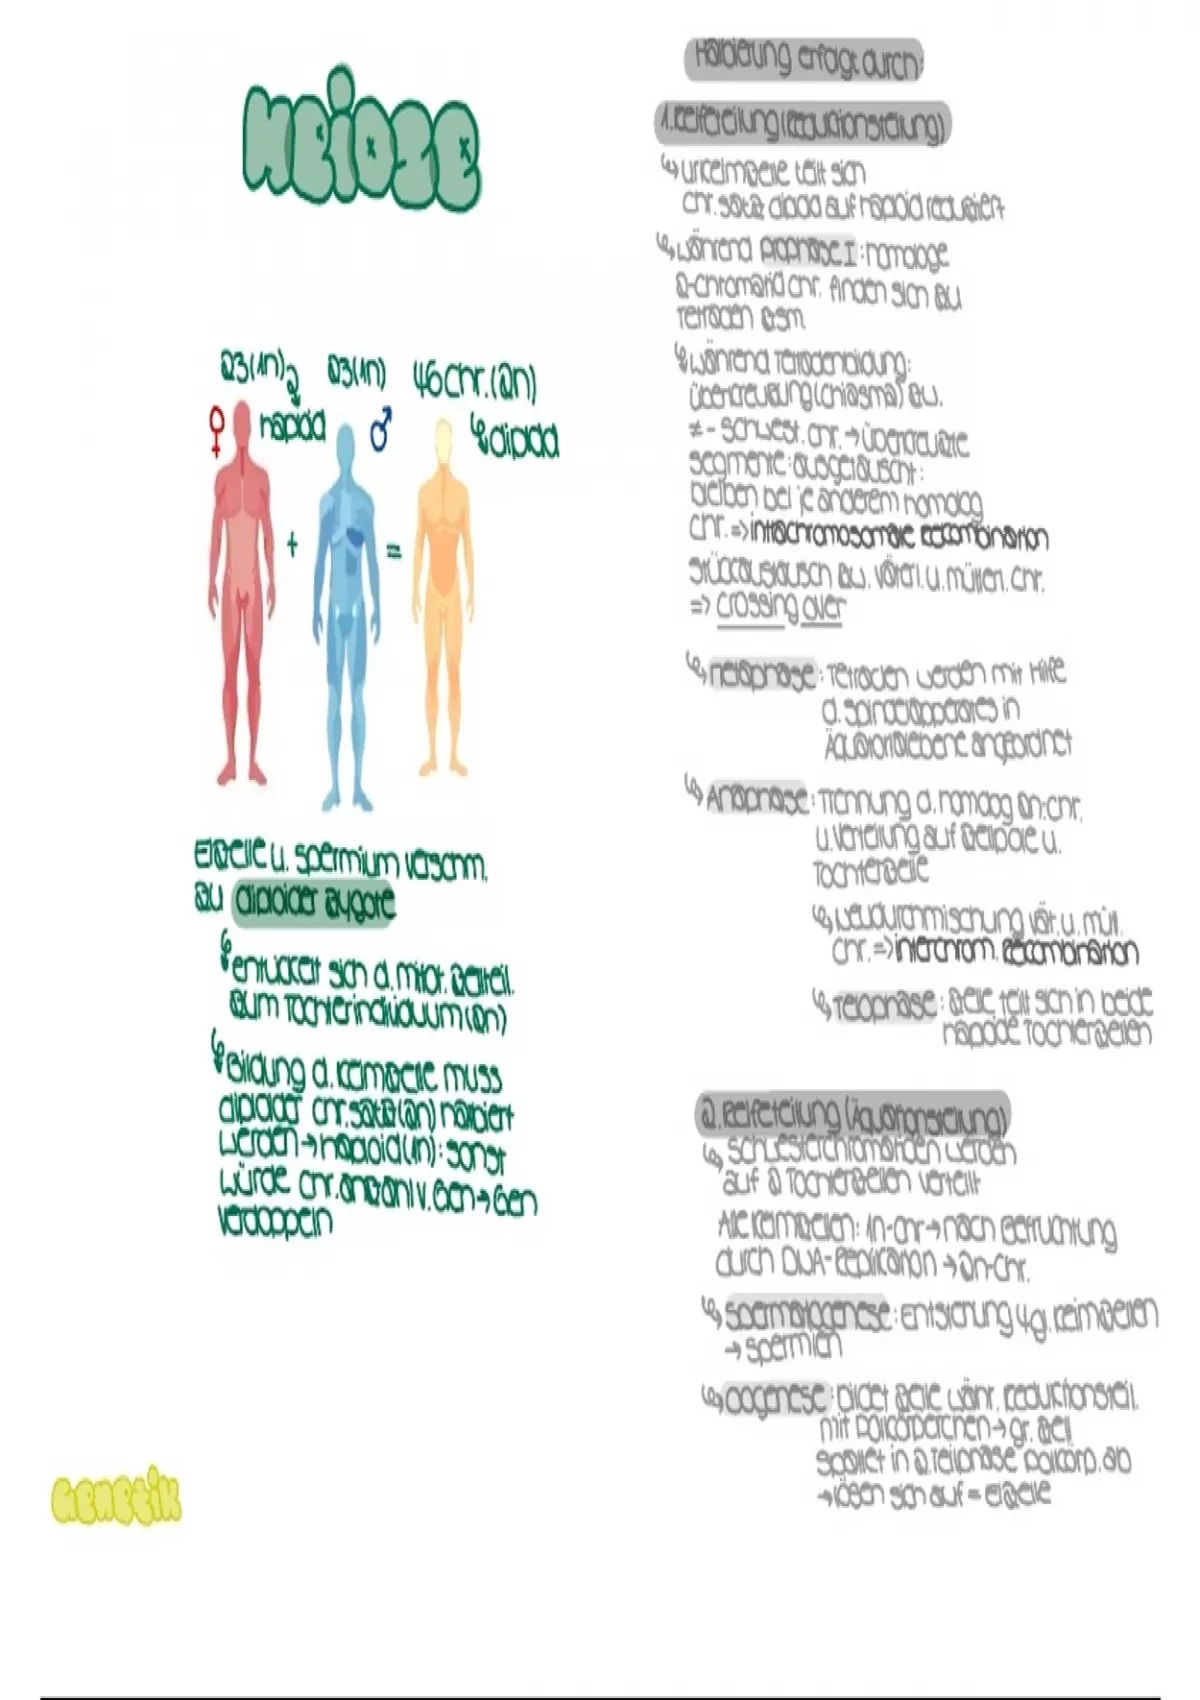 MEIOSE
23(1n) 23(1n) 46 Chr.(2n)
♀ haploid ♂ ↳ diploid
+ =
Eizelle u. Spermium verschm.
zu diploider Zygote
↳ entwickelt sich d. mitot. Zellteil.
zum Tochterindividuum (2n)
↳ Bildung d. Keimzelle muss
diploider Chr.satz (2n) halbiert
werden → haploid (1n): sonst
würde Chr.anzahl v. Gen → Gen
verdoppeln
Genetik
Halbierung erfolgt durch:
1. Reifeteilung (Reduktionsteilung)
↳ Urkeimzelle teilt sich
Chr.satz diploid auf haploid reduziert
↳ während Prophase I: homologe
2-Chromatid Chr. finden sich zu
Tetraden zsm.
↳ während Tetradenbildung:
Überkreuzung (Chiasma) zw.
≠ - Schwest. Chr. → überkreuzte
Segmente: ausgetauscht:
bleiben bei je anderem homolog
Chr. => intrachromosomale Rekombination
Stückaustausch zw. väterl. u. mütterl. Chr.
=> crossing over
↳ Metaphase: Tetraden werden mit Hilfe
d. Spindelapparates in
Äquatorialebene angeordnet
↳ Anaphase: Trennung d. homolog 2n-Chr.
u. Verteilung auf Zellpole u.
Tochterzelle
↳ Neudurchmischung vät. u. mütt.
Chr. => interchrom. Rekombination
↳ Telophase: Zelle teilt sich in beide
haploide Tochterzellen
2. Reifeteilung (Äquationsteilung)
↳ Schwesterchromatiden werden
auf 2 Tochterzellen verteilt
Alle Keimzellen: 1n-Chr → nach Befruchtung
durch DNA-Replikation → 2n-Chr.
↳ Spermatogenese: Entstehung 4 gl. Keimzellen
→ Spermien
↳ Oogenese: bildet Zelle währ. Reduktionsteil.
mit Polkörperchen → gr. Zell
spaltet in 2. Teilphase Polkörp. ab
→ lösen sich auf = Eizelle